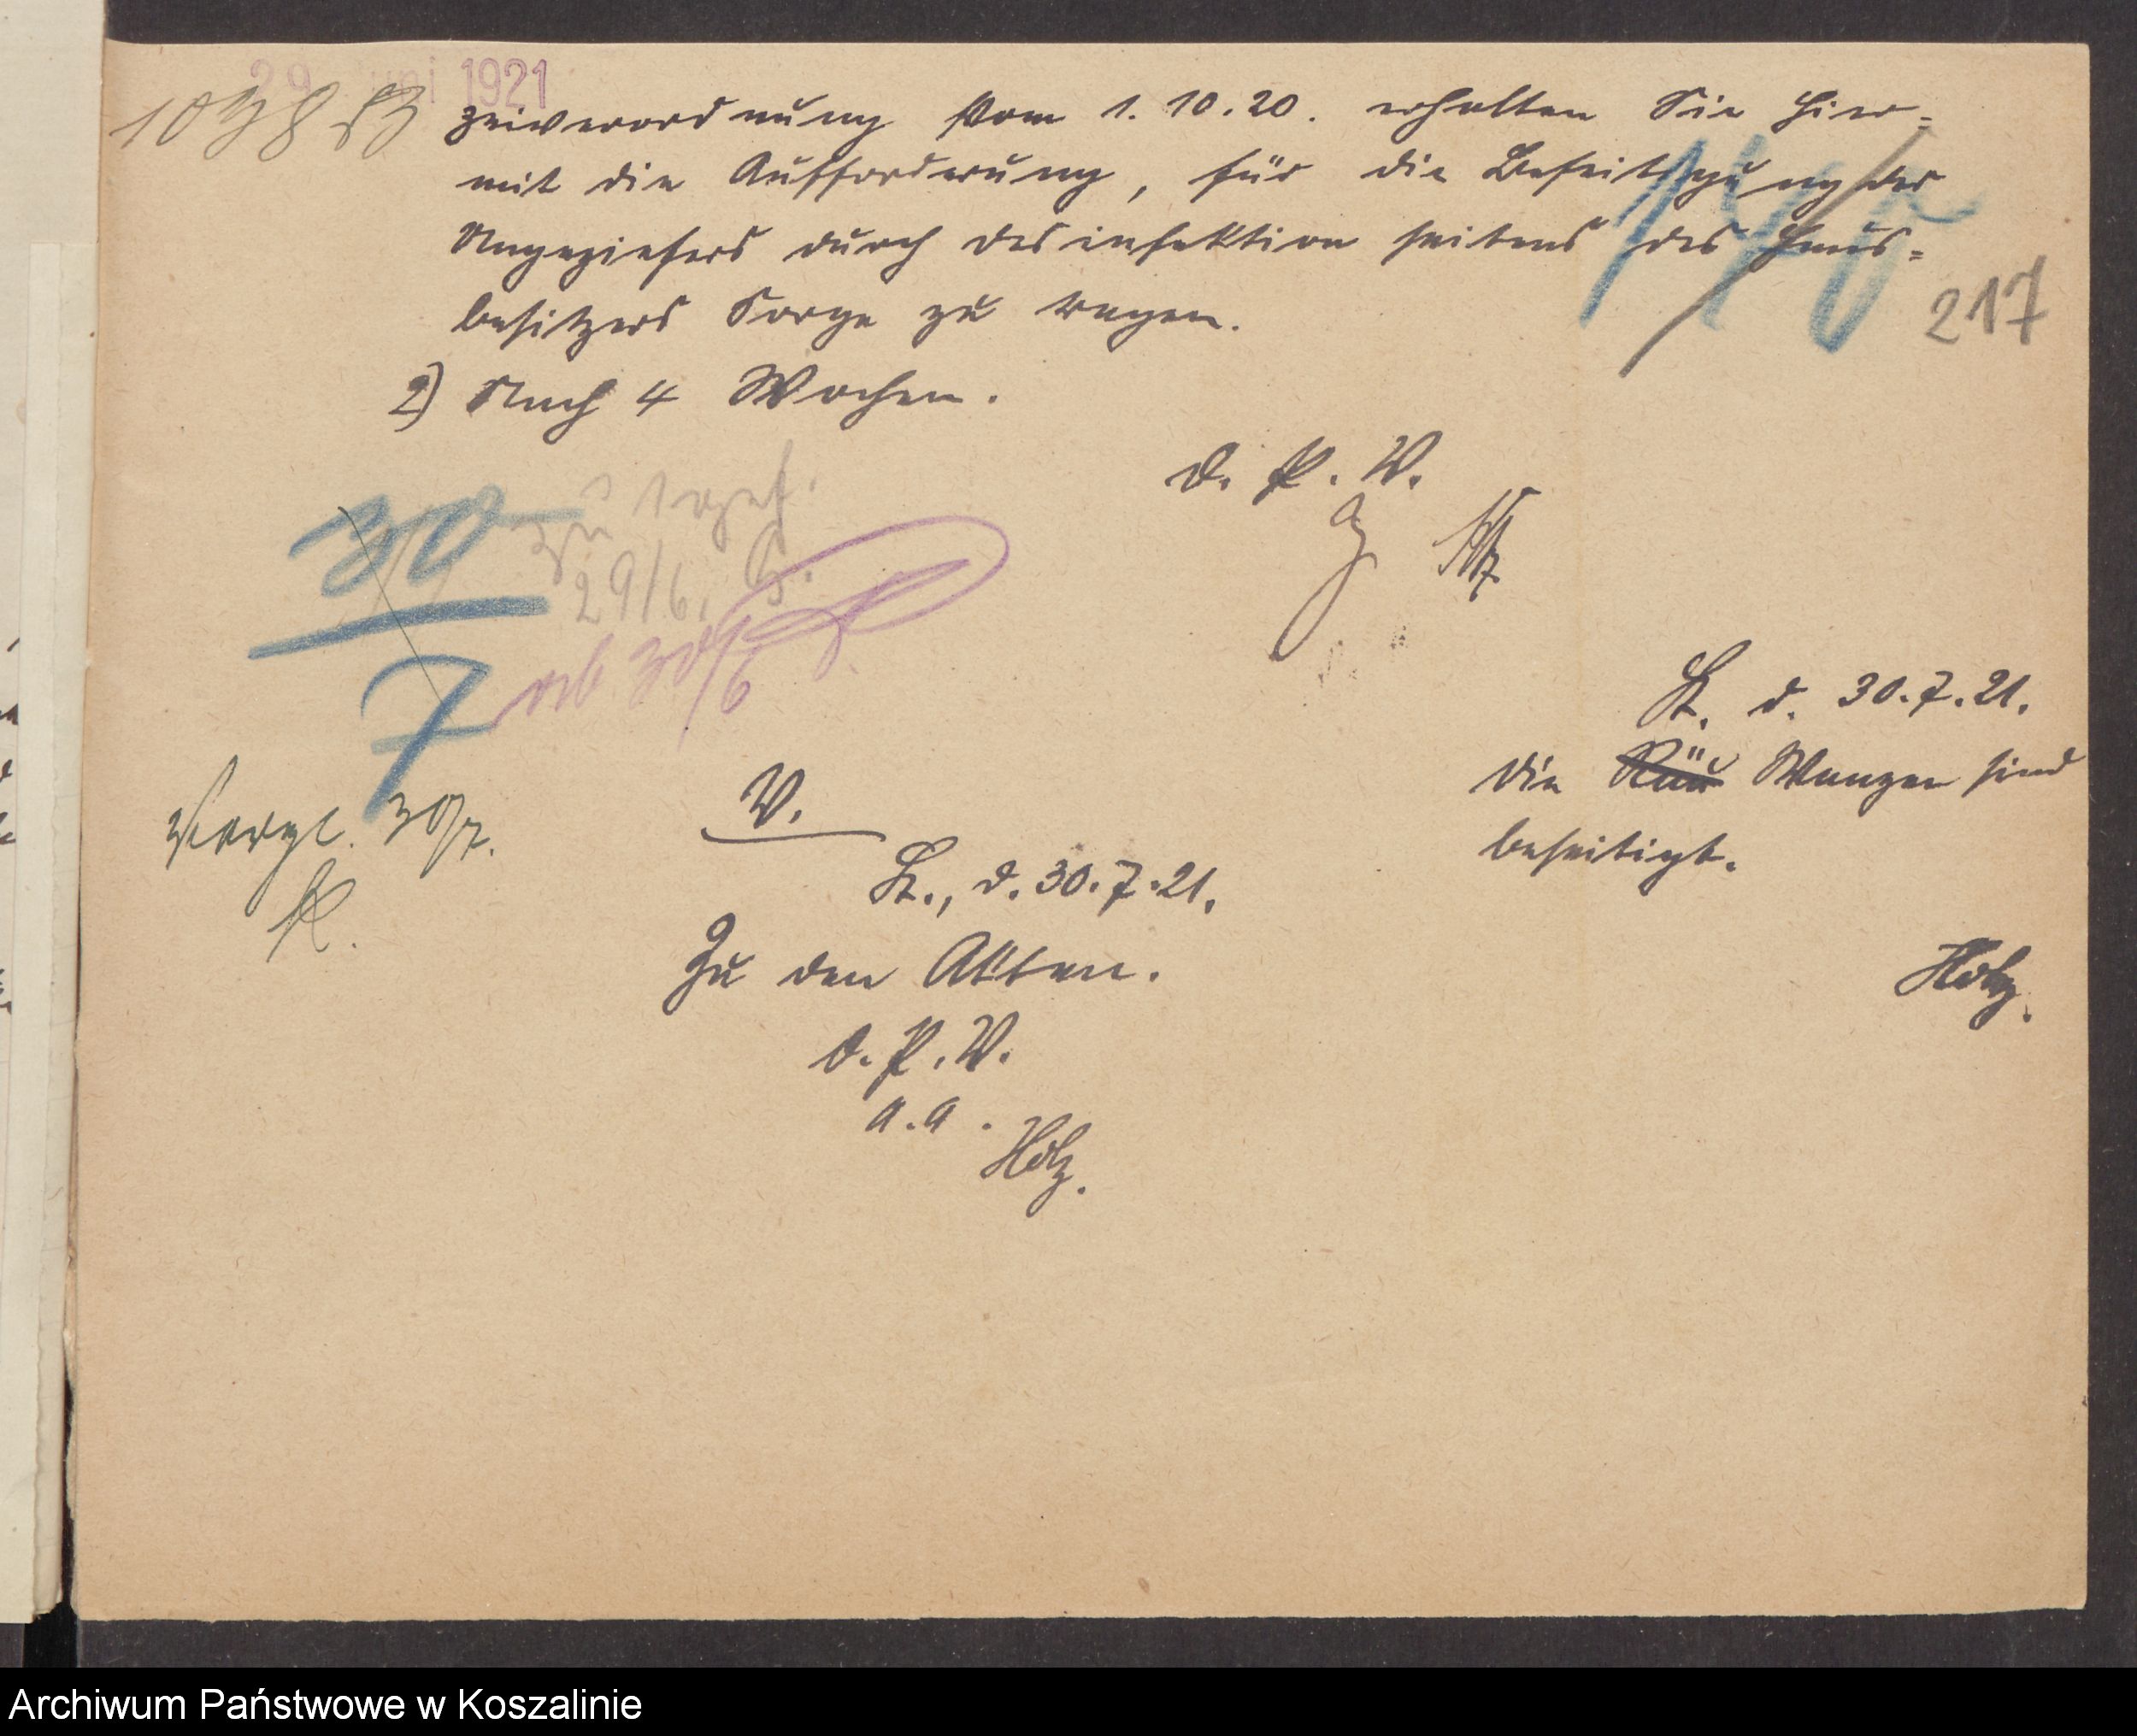 29. Juni 1921
zeiverordnung vom 1. 10. 20. erhalten Sie hier-
mit die Aufforderung, für die Beseitigung des
Ungeziefers durch desinfektion seitens des Haus-
besitzers Sorge zu tragen.
217
2) Nach 4 Wochen.
D. P. V.
30
zu 1 gef.
29/6. G.
ab 30/6
7
St. d. 30.7.21.
Die Wanzen sind
beseitigt.
Holz.
Vorgl. 30/7.
V.
St., d. 30.7.21.
Zu den Akten.
D. P. V.
a. a.
Holz.
Archiwum Państwowe w Koszalinie